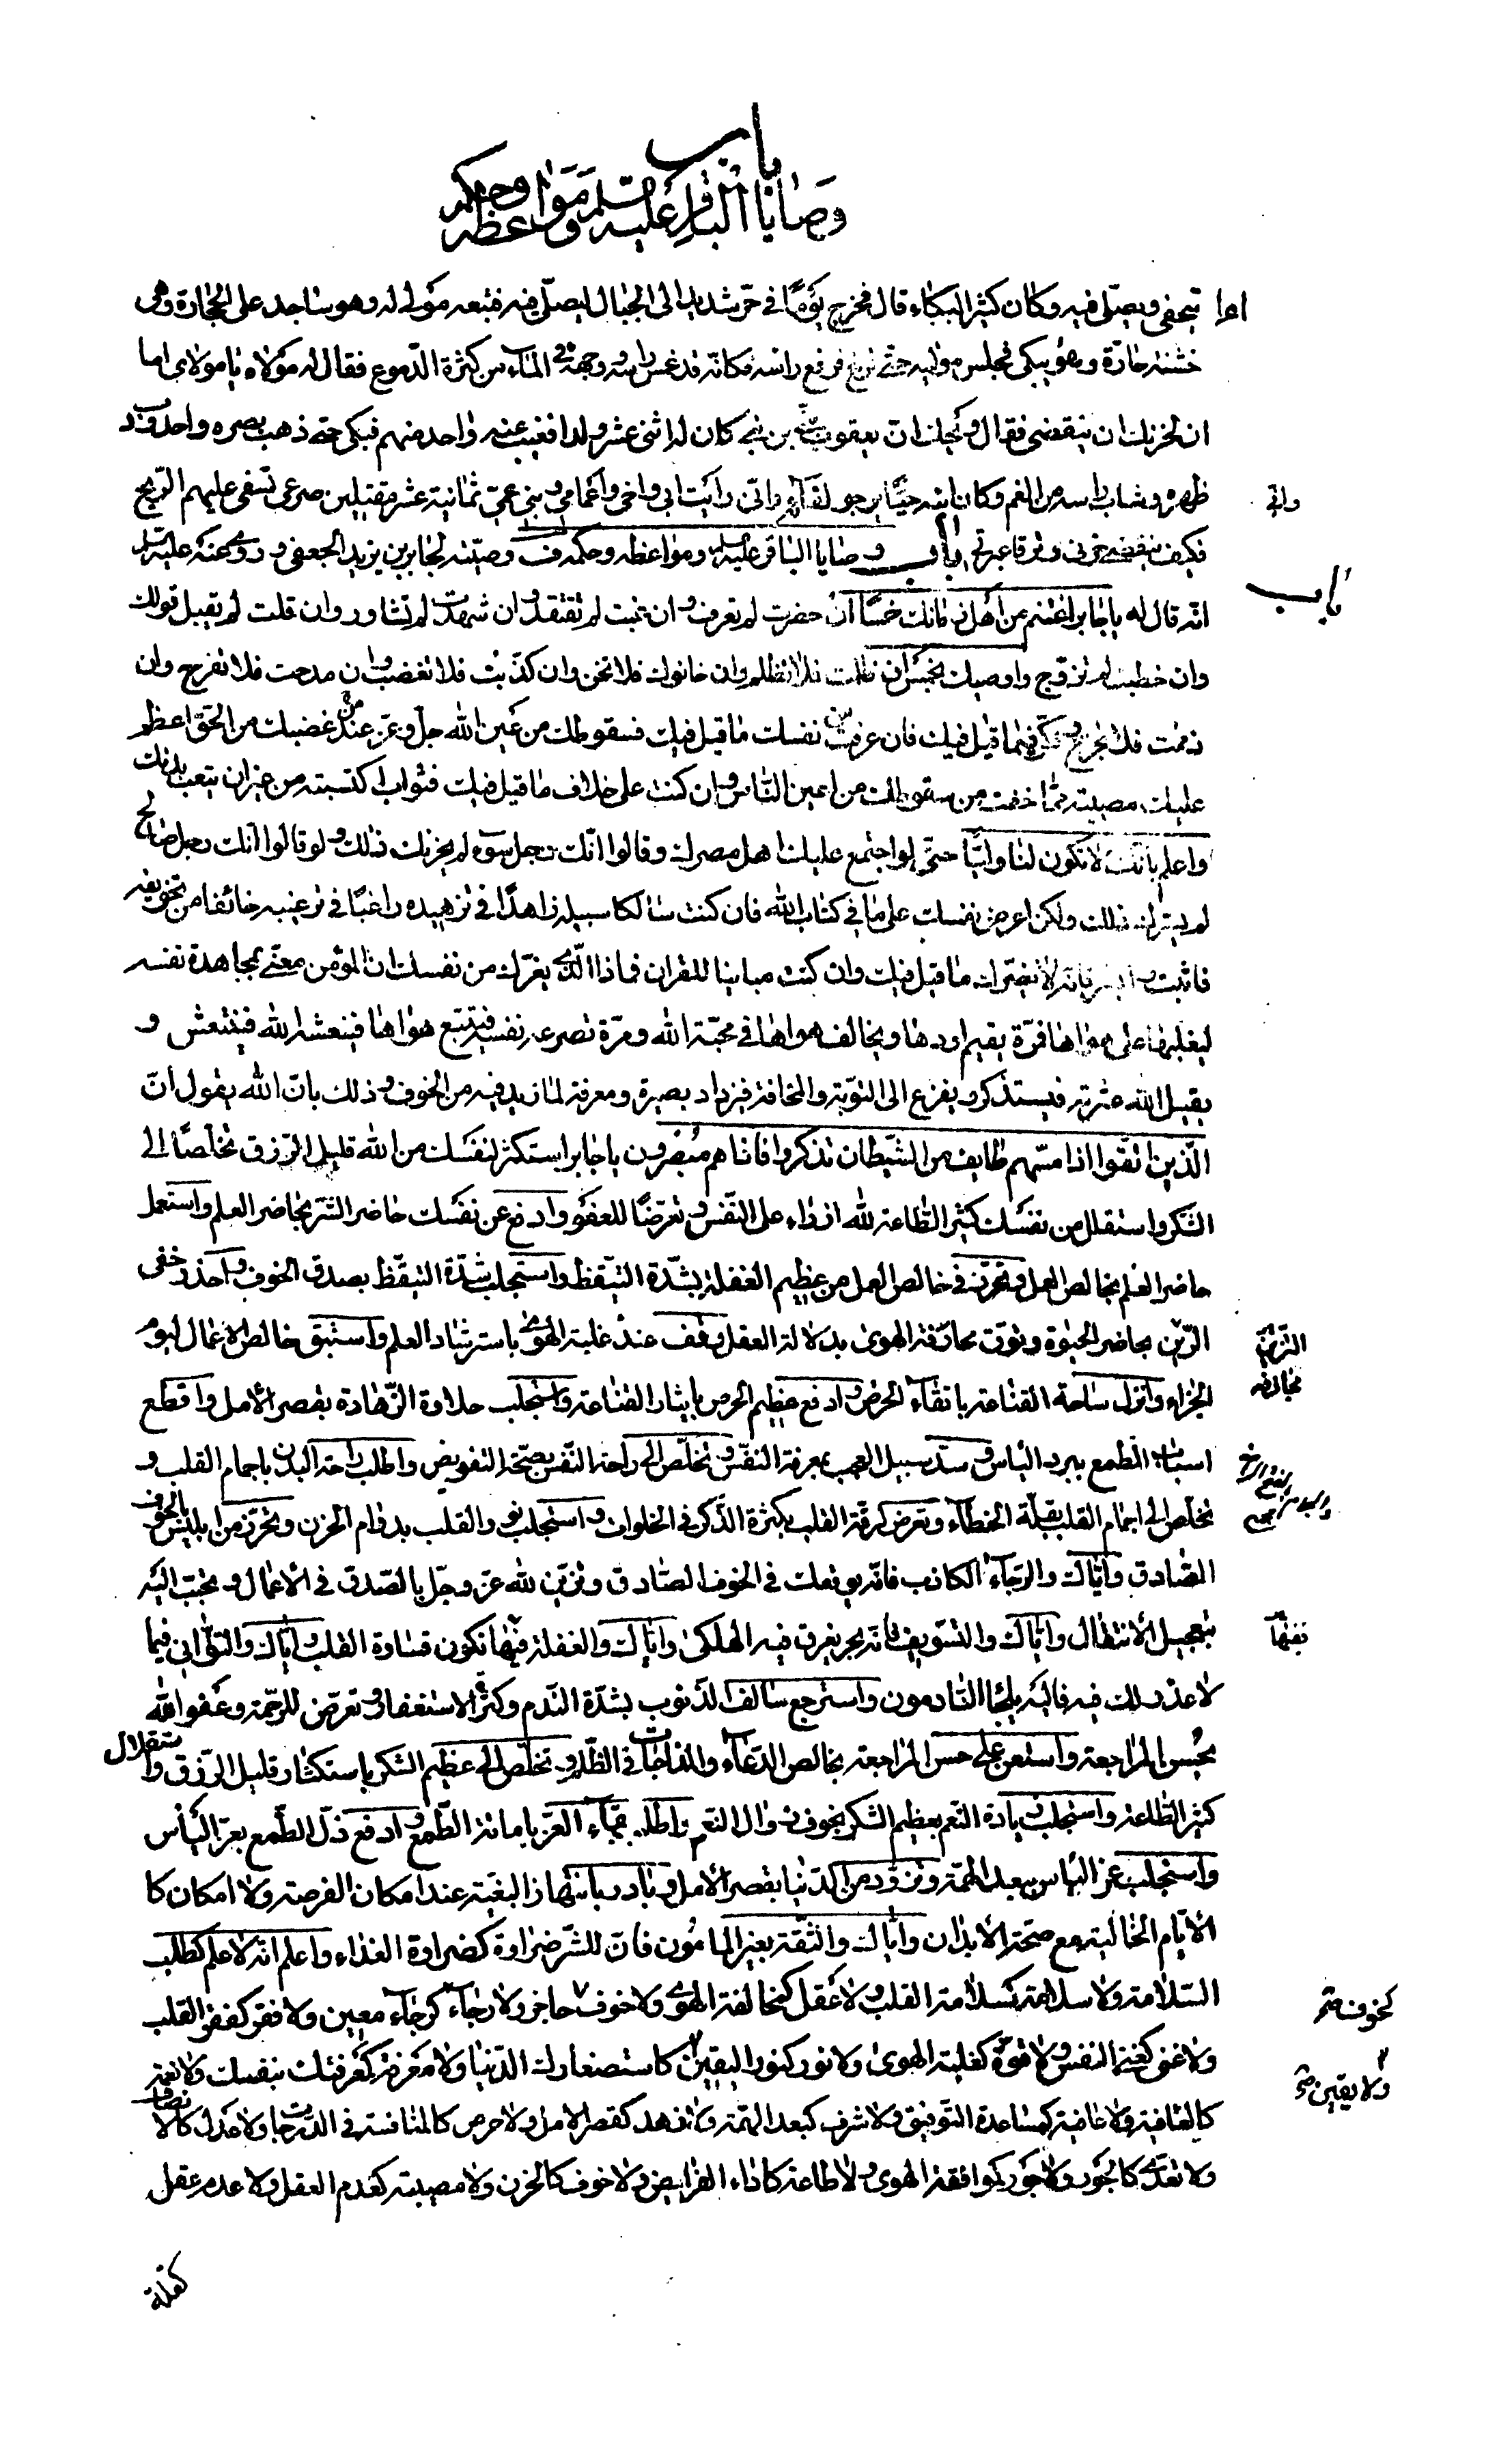 باب
وصايا الباقر عليه السلم ومواعظه وحكمه
يتخفى ويصلى فيه وكان كثير البكاء قال فخرج يوما في حر شديد الى الجبال ليصلى فيه فتبعه مولى له وهو ساجد على الحجارة وهى
خشنة حارة وهو يبكى فجلس مواليه حتى فرغ فرفع راسه فكانه قد غمس راسه ووجهه فى الماء من كثرة الدموع فقال له مولاه يا مولاى اما
ان لحزنك ان ينقضى فقال ويحك ان يعقوب نبى بن نبى كان له اثنى عشر ولدا فغيب عنه واحد منهم فبكى حتى ذهب بصره واحدودب
ظهره وشاب راسه من الغم وكان ابنه حيا يرجو لقاءه وانى رايت ابى واخى واعمامى وبنى عمى ثمانية عشر مقتلين صرعى تسفى عليهم الريح
وانى
فكيف ينقضى حزنى وترقا عبرتى باب وصايا الباقر عليه السلم ومواعظه وحكمه ف وصيته لجابر بن يزيد الجعفى وروى عنه عليه السلم
باب
انه قال له يا جابر اغتنم من اهل زمانك خمسا ان حضرت لم تعرف وان غبت لم تفتقد وان شهدت لم تشاور وان قلت لم يقبل قولك
وان خطبت لم تزوج واوصيك بخمس ان ظلمت فلا تظلم وان خانوك فلا تخن وان كذبت فلا تغضب وان مدحت فلا تفرح وان
ذممت فلا تجزع وفكر فيما قيل فيك فان عرفت من نفسك ما قيل فيك فسقوطك من عين الله جل وعز عند غضبك من الحق اعظم
عليك مصيبة مما خفت من سقوطك من اعين الناس وان كنت على خلاف ما قيل فيك فثواب اكتسبته من غير ان يتعب بدنك
واعلم بانك لا تكون لنا وليا حتى لو اجتمع عليك اهل مصرك وقالوا انك رجل سوء لم يحزنك ذلك ولو قالوا انك رجل صالح
لم يسرك ذلك ولكن اعرض نفسك على ما في كتاب الله فان كنت سالكا سبيله زاهدا في تزهيده راغبا في ترغيبه خائفا من تخويفه
فاثبت وابشر فانه لا يضرك ما قيل فيك وان كنت مباينا للقران فماذا الذى يغرك من نفسك ان المؤمن معنى بمجاهدة نفسه
ليغلبها على هواها فمرة يقيم اودها ويخالف هواها في محبة الله ومرة تصرعه نفسه فيتبع هواها فينعشه الله فينتعش و
يقيل الله عثرته فيستذكر ويفزع الى التوبة والمخافة فيزداد بصيرة ومعرفة لما زيد فيه من الخوف وذلك بان الله يقول ان
الذين اتقوا اذا مسهم طايف من الشيطان تذكروا فاذا هم مبصرون يا جابر استكثر لنفسك من الله قليل الرزق تخلصا الى
الشكر واستقلل من نفسك كثير الطاعة لله ازراء على النفس وتعرضا للعفو وادفع عن نفسك حاضر الشر بحاضر العلم واستعمل
حاضر العلم بخالص العمل وتحرز في خالص العمل من عظيم الغفلة بشدة التيقظ واستجلب شدة التيقظ بصدق الخوف واحذر خفى
الزين بحاضر الحيوة وتوق مجازفة الهوى بدلالة العقل وقف عند غلبة الهوى باسترشاد العلم واستبق خالص الاعمال ليوم
الجزاء وانزل ساحة القناعة باتقاء الحرص وادفع عظيم الحرص بايثار القناعة واستجلب حلاوة الزهادة بقصر الامل واقطع
اسباب الطمع ببرد الياس وسد سبيل العجب بمعرفة النفس وتخلص الى راحة النفس بصحة التفويض واطلب راحة البدن باجمام القلب و
تخلص الى اجمام القلب بقلة الخطاء وتعرض لرقة القلب بكثرة الذكر في الخلوات واستجلب نور القلب بدوام الحزن وتحرز من ابليس بالخوف
الصادق واياك والرجاء الكاذب فانه يوقعك في الخوف الصادق وتزين لله عز وجل بالصدق في الاعمال وتحبب اليه
بتعجيل الانتقال واياك والتسويف فانه بحر يغرق فيه الهلكى واياك والغفلة فيها تكون قساوة القلب واياك والتوانى فيما
لا عذر لك فيه فاليه يلجا النادمون واسترجع سالف الذنوب بشدة الندم وكثرة الاستغفار وتعرض للرحمة وعفو الله
بحسن المراجعة واستعن على حسن المراجعة بخالص الدعاء والمناجات في الظلم وتخلص الى عظيم الشكر باستكثار قليل الرزق واستقلال
كثير الطاعة واستجلب زيادة النعم بعظيم الشكر بخوف زوال النعم واطلب بقاء العز باماتة الطمع وادفع ذل الطمع بعز الياس
واستجلب عز الياس ببعد الهمة وتزود من الدنيا بقصر الامل وبادر بانتهاز البغية عند امكان الفرصة ولا امكان كا
الايام الخالية مع صحة الابدان واياك والثقة بغير المامون فان للشر ضراوة كضراوة الغذاء واعلم انه لا علم كطلب
السلامة ولا سلامة كسلامة القلب ولا عقل كمخالفة الهوى ولا خوف حاجز ولا رجاء كرجاء معين ولا فقر كفقر القلب
كخوف
ولا غنى كغنى النفس ولا قوة كغلبة الهوى ولا نور كنور اليقين كاستصغارك الدنيا ولا معرفة كمعرفتك بنفسك ولا نعمة
ولا يقين
كالعافية ولا عافية كمساعدة التوفيق ولا شرف كبعد الهمة ولا زهد كقصر الامل ولا حرص كالمنافسة في الدرجات ولا عدل كالانصاف
ولا تعدى كالجور ولا جور كموافقة الهوى ولا طاعة كاداء الفرايض ولا خوف كالحزن ولا مصيبة كعدم العقل ولا عدم عقل
كقلة